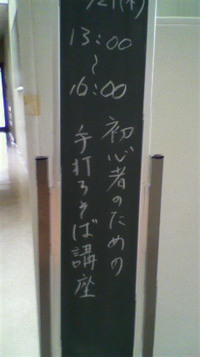 /21(木)
13:00
〜
16:00
初心者のための
手打ちそば講座